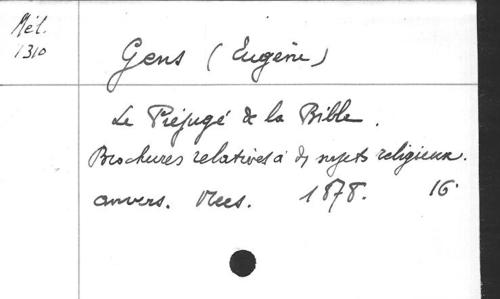 Mél.
1310
Gens (Eugène)
Le Préjugé de la Bible.
Brochures relatives à des sujets religieux.
Anvers. Mees. 1878. 16°